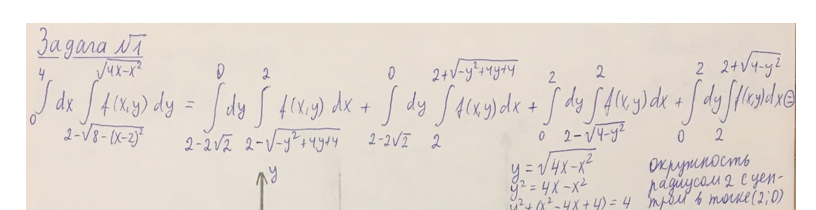 Задача №1
∫₀⁴ dx ∫_{2-√(8-(x-2)²)}^{√(4x-x²)} f(x,y) dy = ∫_{2-2√2}^{0} dy ∫_{2-√(-y²+4y+4)}^{2} f(x,y) dx + ∫_{2-2√2}^{0} dy ∫_{2}^{2+√(-y²+4y+4)} f(x,y) dx + ∫_{0}^{2} dy ∫_{2-√(4-y²)}^{2} f(x,y) dx + ∫_{0}^{2} dy ∫_{2}^{2+√(4-y²)} f(x,y) dx ⊜
y
y = √(4x-x²)
y² = 4x-x²
y²+(x²-4x+4) = 4
окружность
радиусом 2 с цен-
тром в точке (2;0)